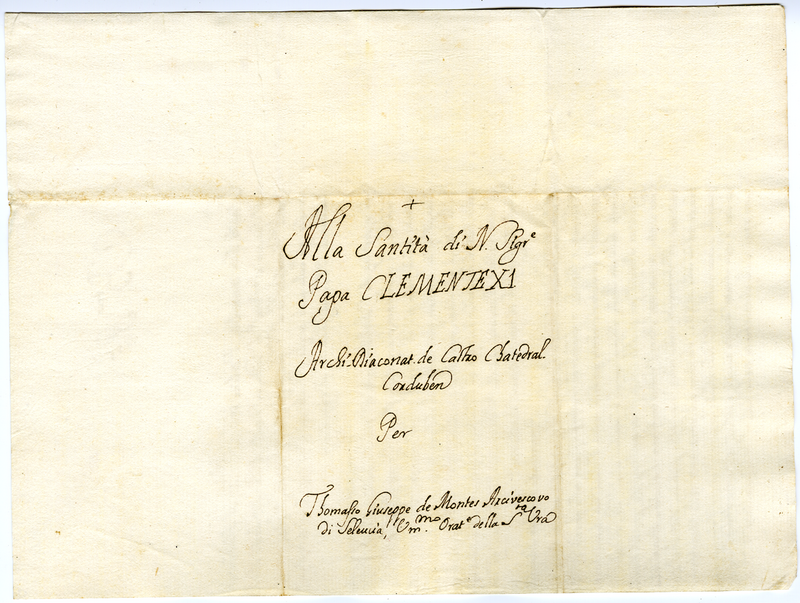 +
Alla Santità di N. Sigr.e
Papa CLEMENTE X1
Archi-Diaconat. de Castro Chatedral.
Corduben
Per
Thomasso Giuseppe de Montes Arcivescovo
di Seleucia, Um.mo Orat.e della S.ta Vra